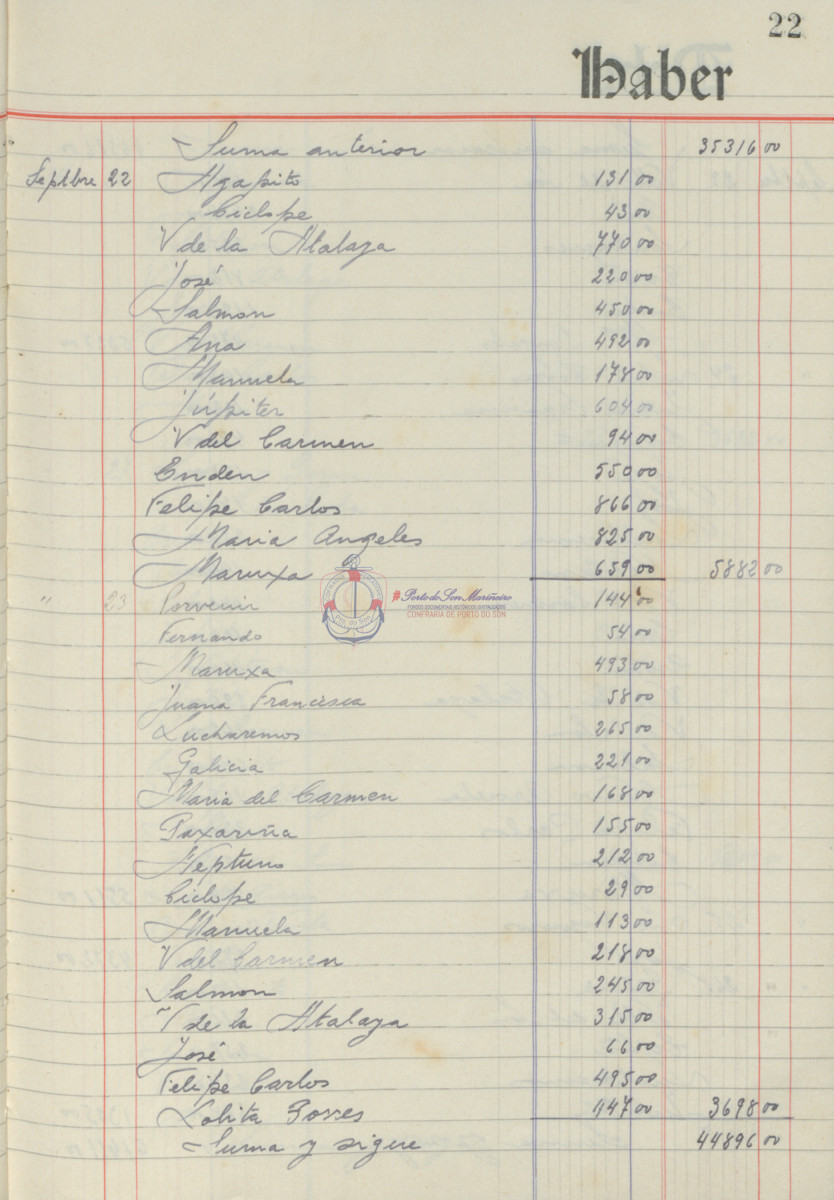 22
Haber
Suma anterior 35316 00
Septbre 22 Agapito 131 00
Ciclope 43 00
V de la Atalaya 770 00
José 220 00
Salmon 450 00
Ana 492 00
Manuela 178 00
Júpiter 604 00
V del Carmen 94 00
Enden 550 00
Felipe Carlos 866 00
Maria Angeles 825 00
Maruxa 659 00 5882 00
" 23 Porvenir 144 00
Fernando 54 00
Maruxa 493 00
Juana Francisca 58 00
Lucharemos 265 00
Galicia 221 00
Maria del Carmen 168 00
Paxariña 155 00
Neptuno 212 00
Ciclope 29 00
Manuela 113 00
V del Carmen 218 00
Salmon 245 00
V de la Atalaya 315 00
José 66 00
Felipe Carlos 495 00
Lolita Torres 447 00 3698 00
Suma y sigue 44896 00
#Porto do Son Mariñeiro
FONDOS DOCUMENTAIS HISTÓRICOS DIXITALIZADOS
CONFRARIA DE PORTO DO SON